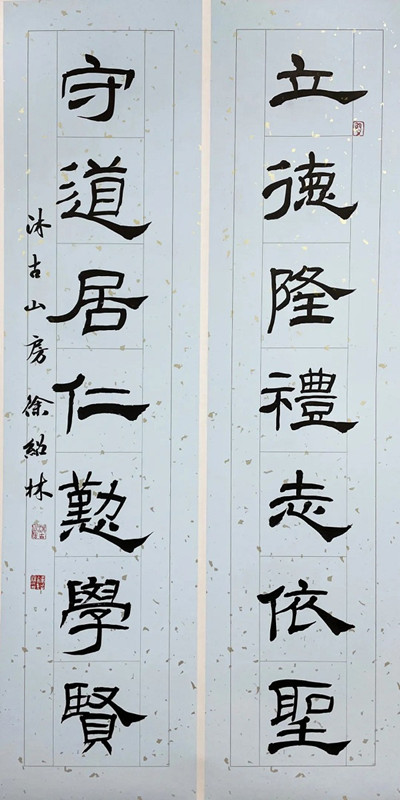 立德隆禮志依聖
守道居仁懃學賢
沐古山房徐紹林